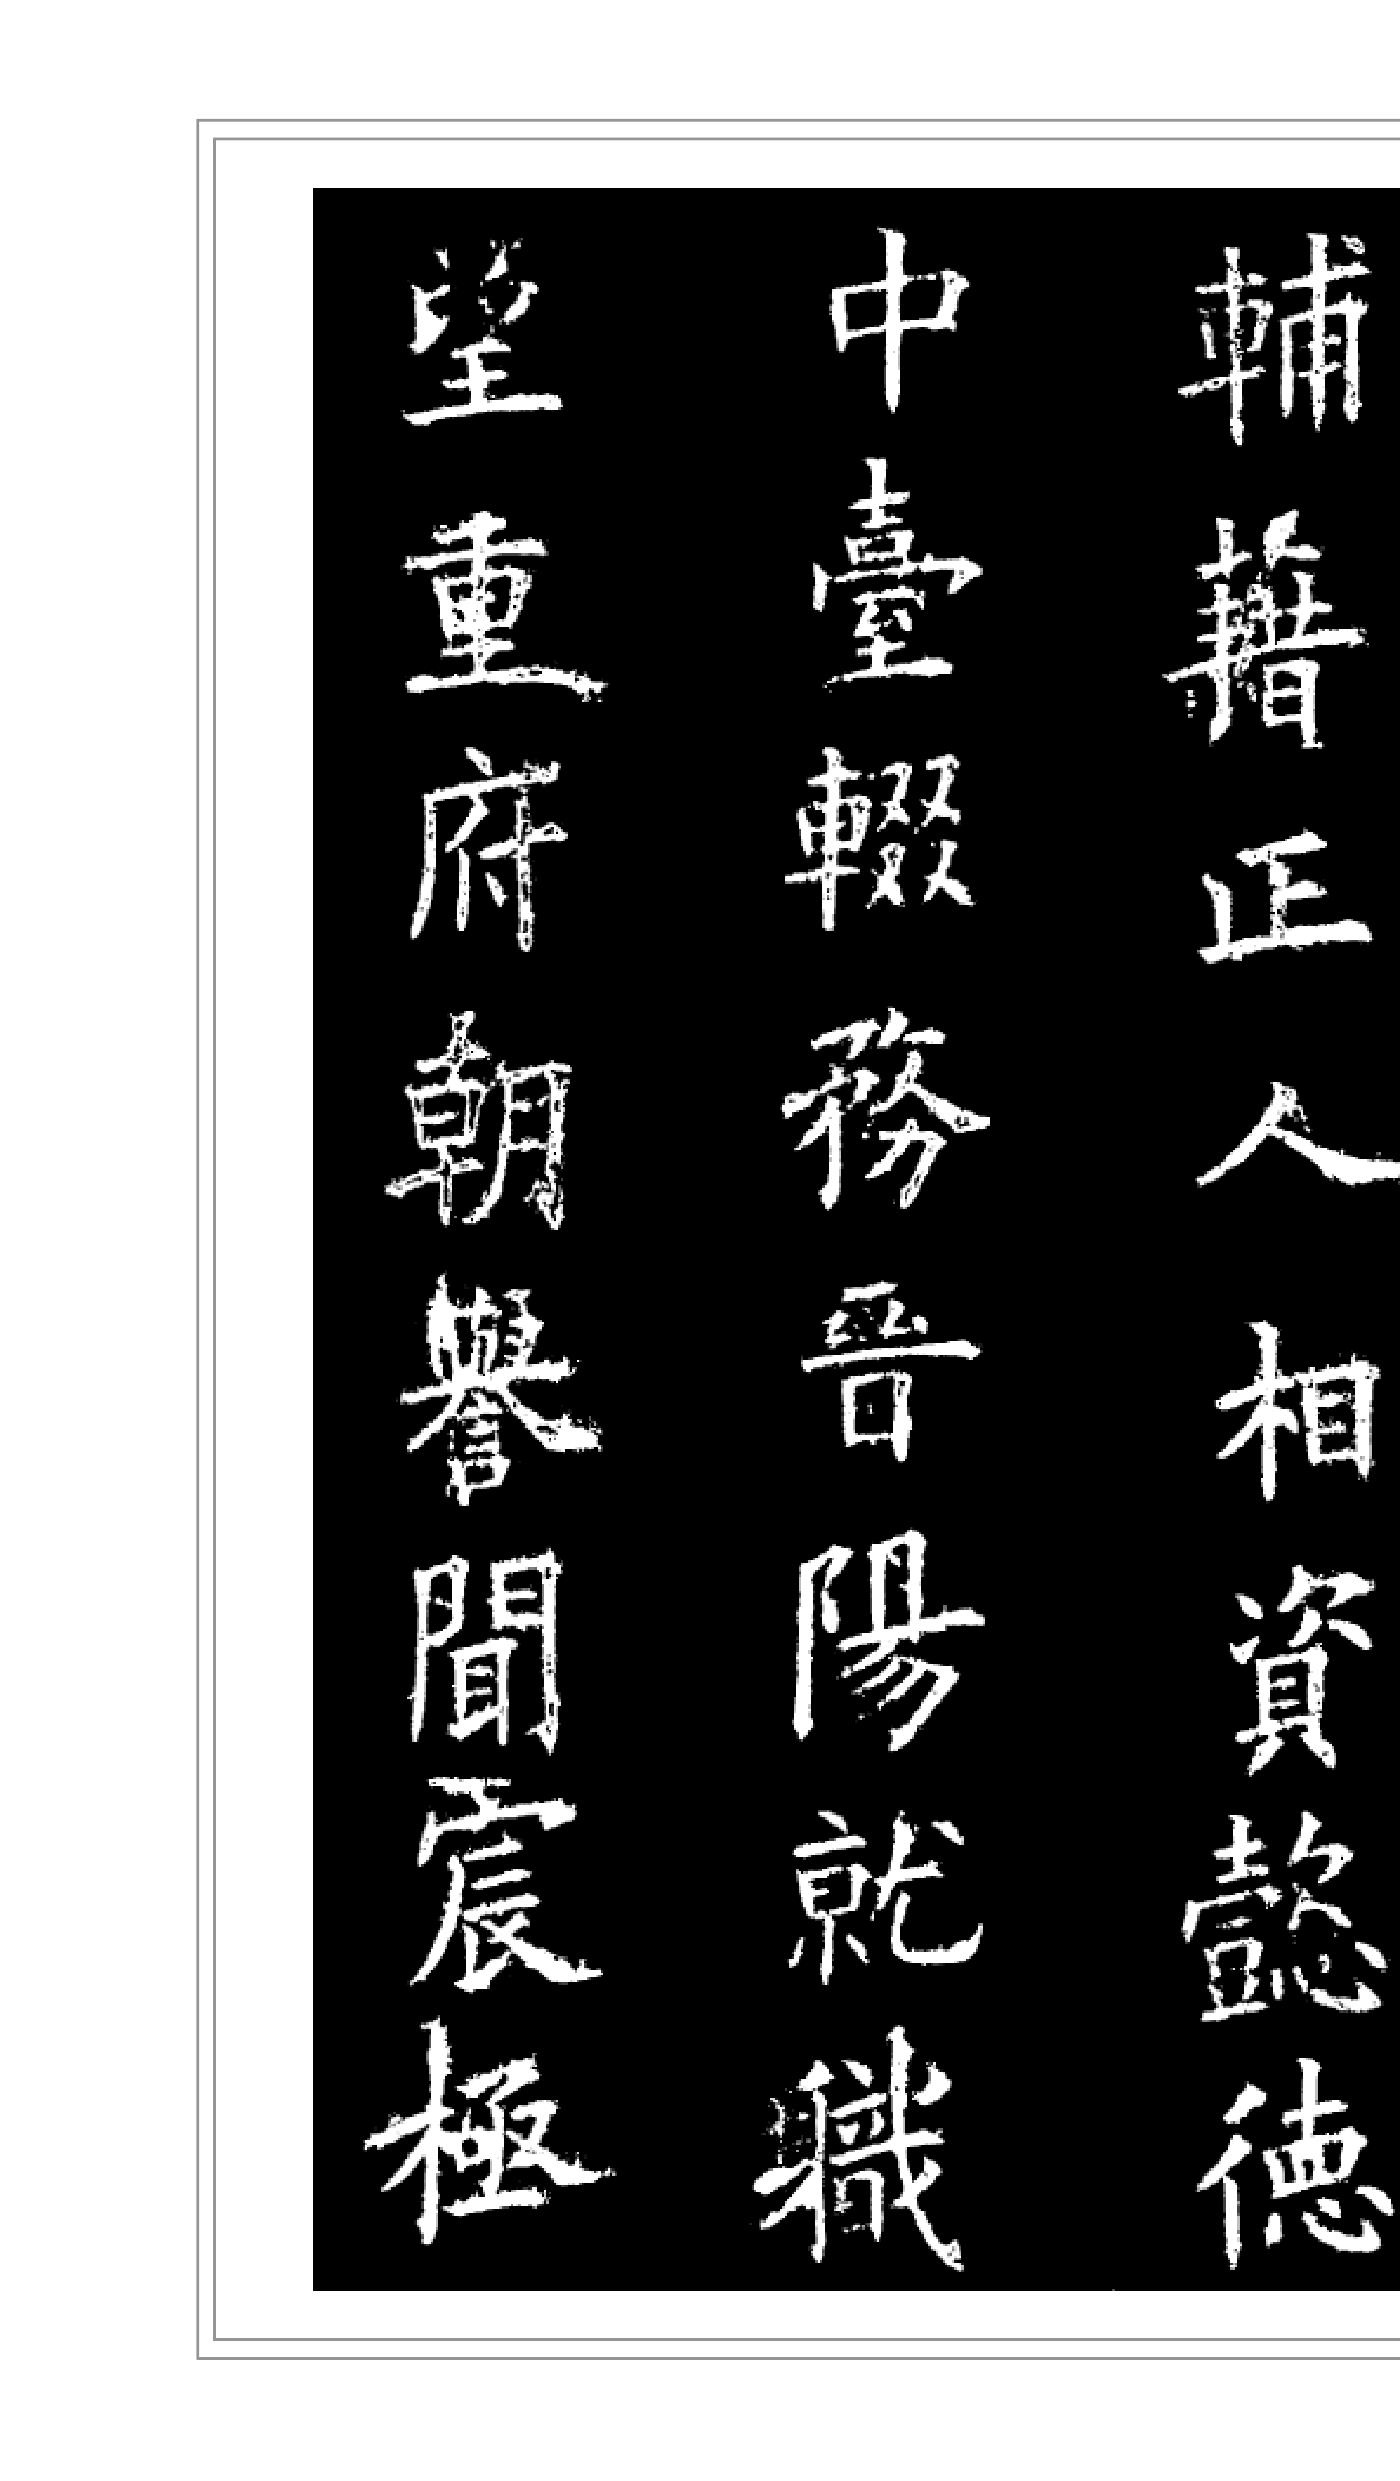 輔藉正人相資懿德
中臺輟務晉陽就職
望重府朝譽聞宸極